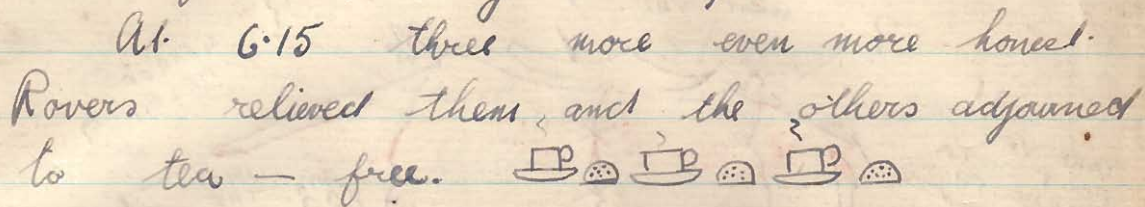 At 6·15 three more even more honest
Rovers relieved them, and the others adjourned
to tea — free.